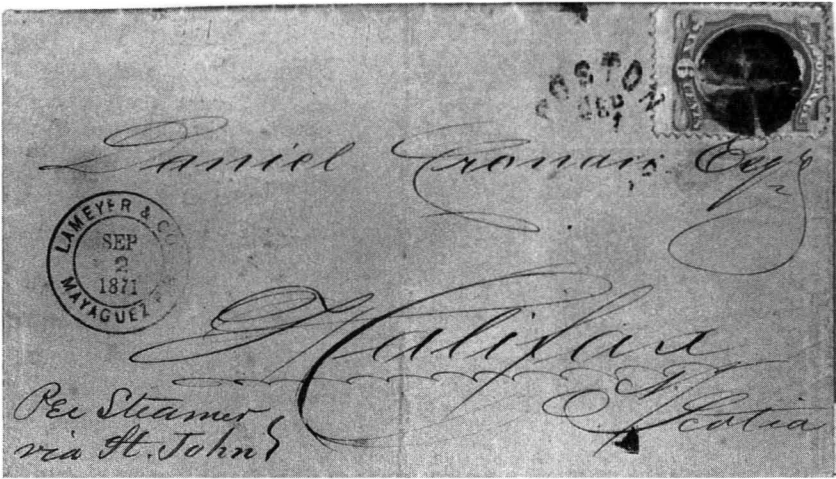 BOSTON
SEP
Daniel Cronan Esq
LAMEYER & CO
SEP
2
1871
MAYAGUEZ
Halifax
N. Scotia
Per Steamer
via St. John